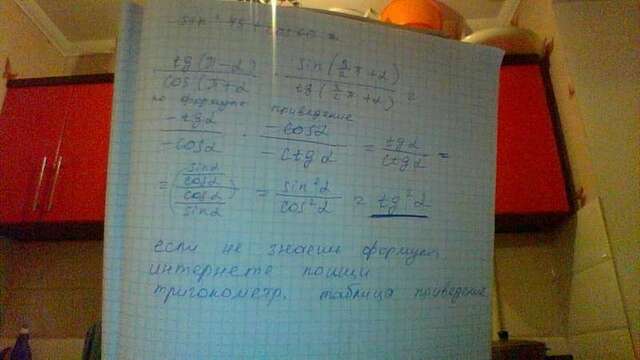 sin² 45 - cos 60 =
tg(π-α) / cos(π+α · sin(3/2 π+α) / tg(3/2 π+α) =
по формуле приведение
-tgα / -cosα · -cosα / -ctgα = tgα / ctgα =
= (sinα / cosα / cosα / sinα) = sin²α / cos²α = tg²α
если не знаешь формулы
интернете поищи
тригонометр. таблица приведение